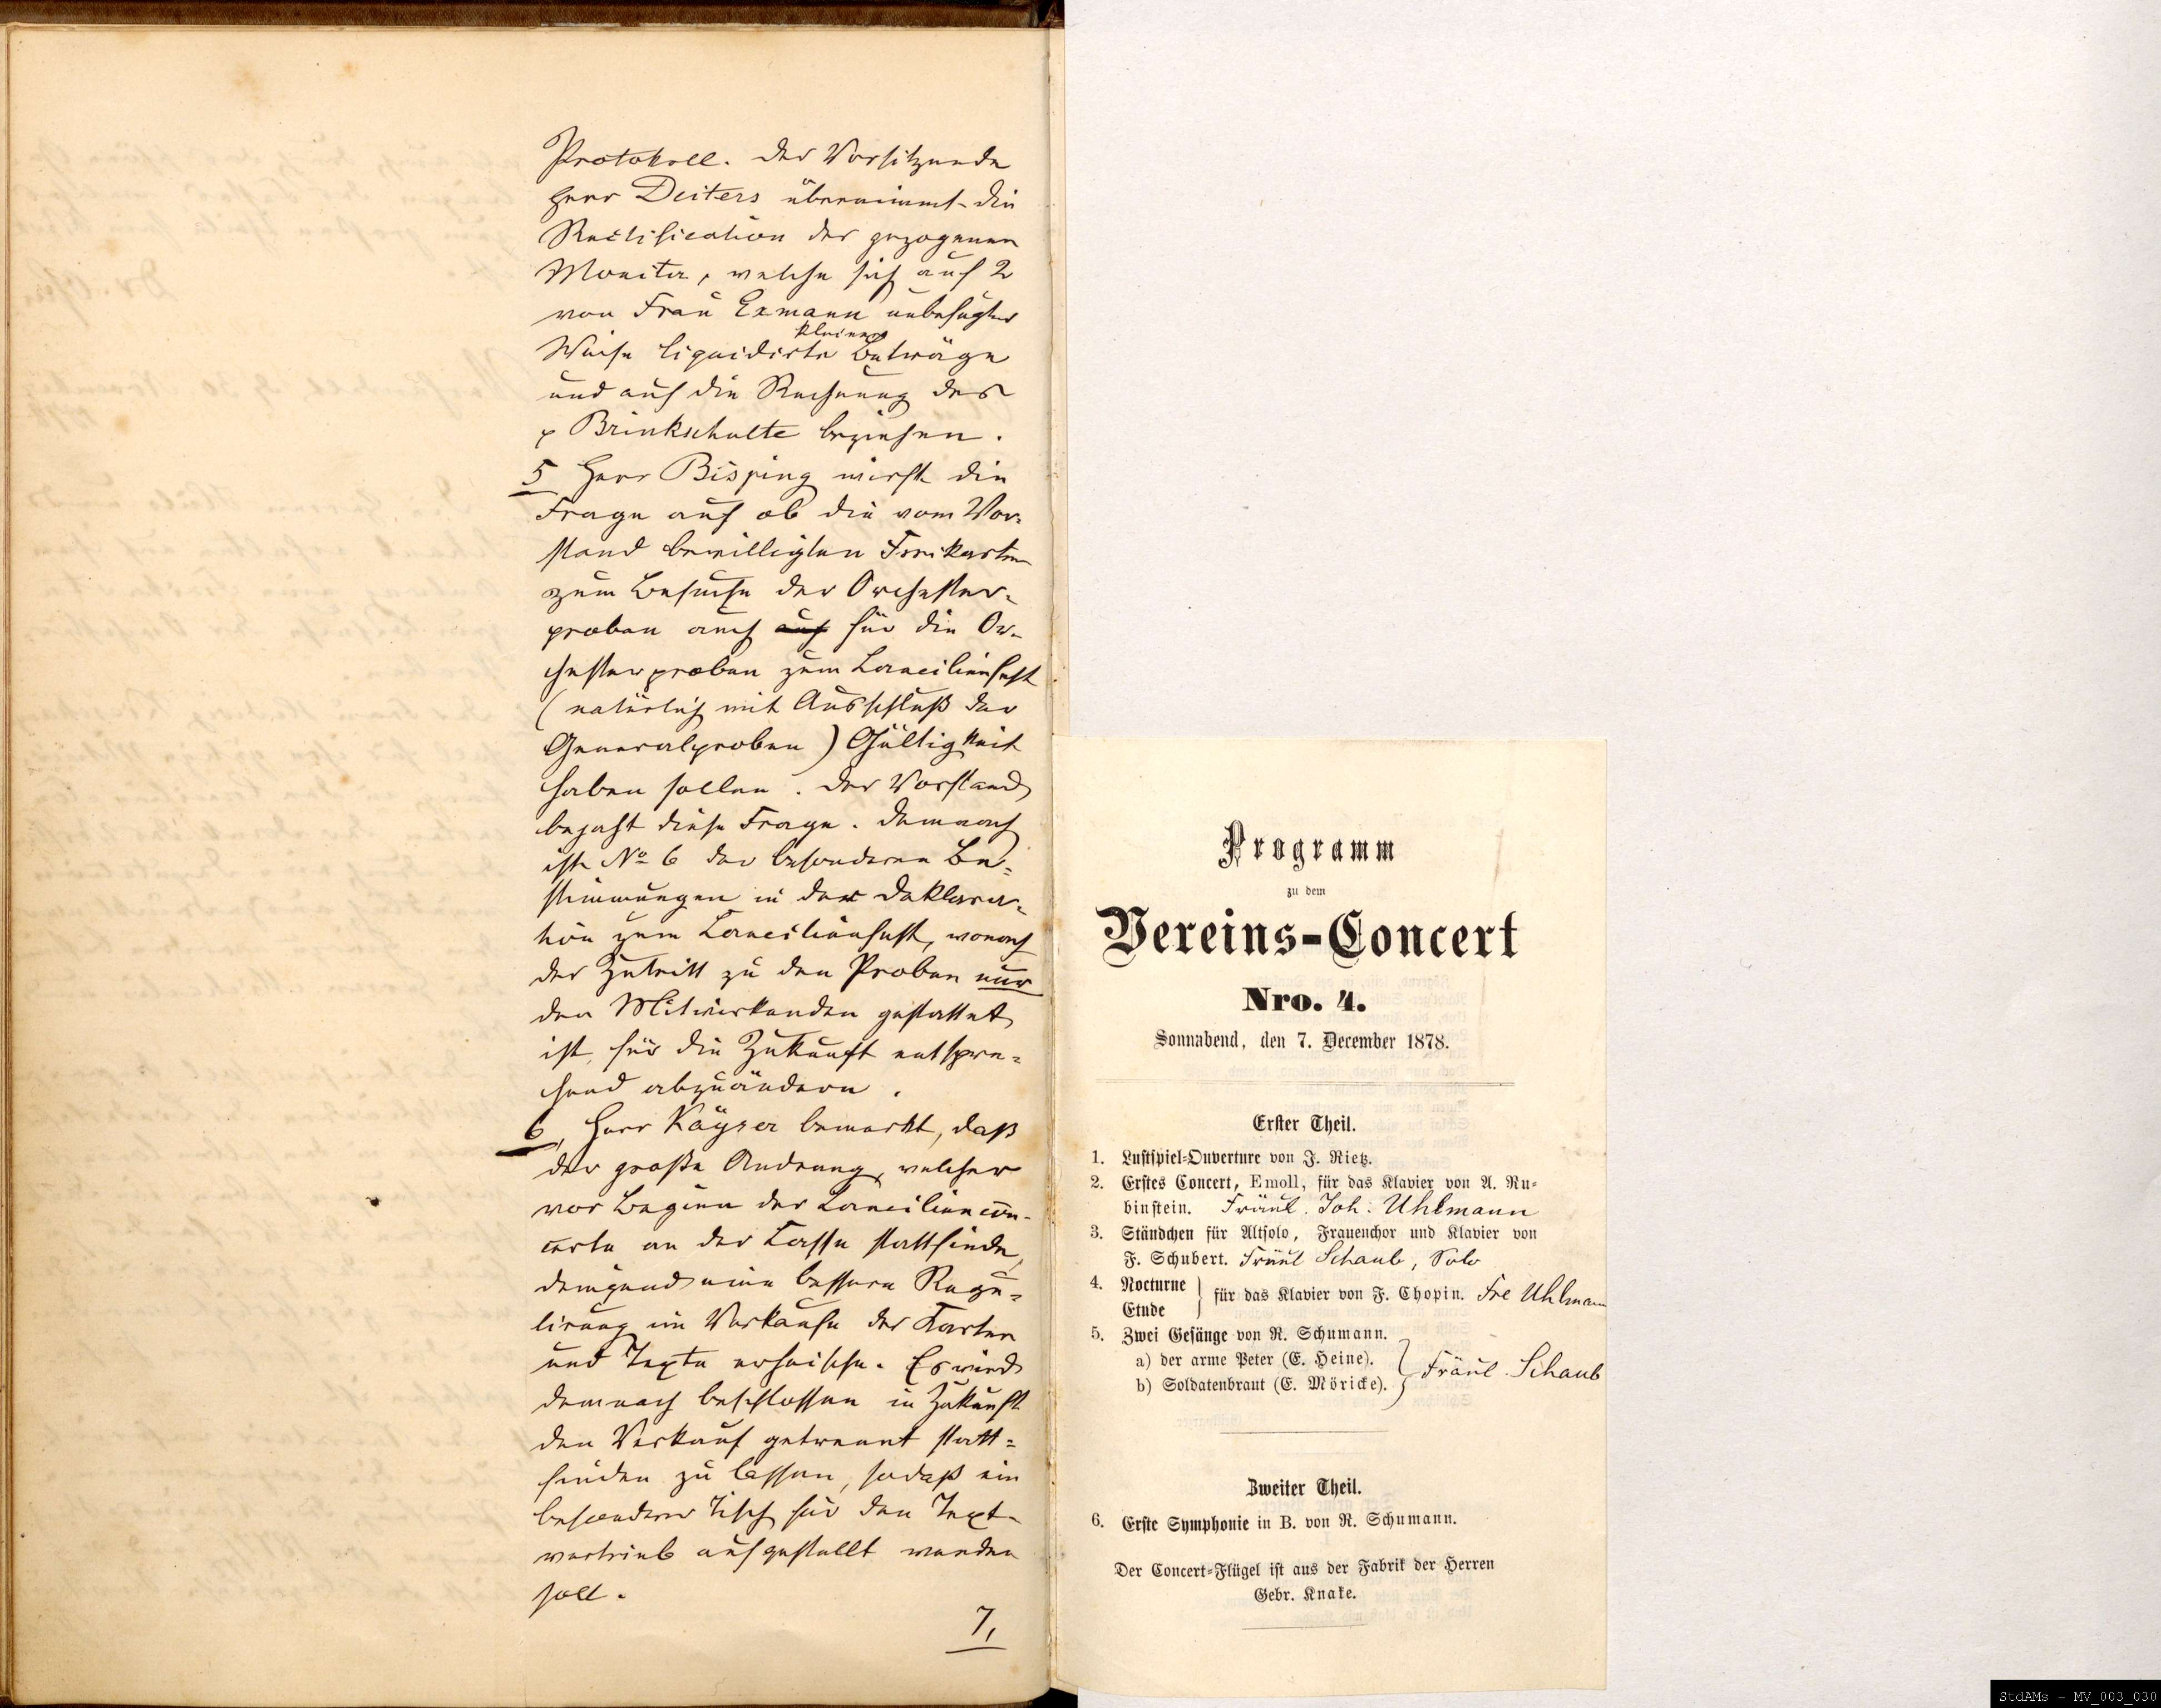 Protokoll. Der Vorsitzende
Herr Deiters übernimmt die
Rectification der gezogenen
Monita, welche sich auf 2
von Frau Exmann unbefugter
kleinere
Weise liquidirte Beträge
und auf die Rechnung des
p Brinkschulte beziehen.
5 Herr Bisping wirft die
Frage auf ob die vom Vor-
stand bewilligten Freikarten
zum Besuche der Orchester-
proben auch auf für die Or-
chesterproben zum Caecilienfest
(natürlich mit Ausschluß der
Generalproben) Gültigkeit
haben sollen. Der Vorstand
bejaht diese Frage. Demnach
ist No 6 der besonderen Be-
stimmungen in der Deklara-
tion zum Caecilienfest, wonach
der Zutritt zu den Proben nur
den Mitwirkenden gestattet
ist, für die Zukunft entspre-
chend abzuändern.
6, Herr Kayser bemerkt, daß
der große Andrang, welcher
vor Beginn der Caeciliencon-
certe an der Casse stattfinde,
dringend eine bessere Regu-
lirung im Verkaufe der Karten
und Texte erheische. Es wird
demnach beschlossen in Zukunft
den Verkauf getrennt statt-
finden zu lassen, sodaß ein
besonderer Tisch für den Text-
vertrieb aufgestellt werden
soll.
7,
Programm
zu dem
Vereins-Concert
Nro. 4.
Sonnabend, den 7. December 1878.
Erster Theil.
1. Lustspiel-Ouverture von J. Rietz.
2. Erstes Concert, Emoll, für das Klavier von A. Ru-
binstein. Fräul. Joh: Uhlmann
3. Ständchen für Altsolo, Frauenchor und Klavier von
F. Schubert. Fräul Schaub, Solo
4. Nocturne
Etude } für das Klavier von F. Chopin. Fre Uhlmann
5. Zwei Gesänge von R. Schumann.
a) der arme Peter (E. Heine).
b) Soldatenbraut (E. Möricke). } Fräul. Schaub
Zweiter Theil.
6. Erste Symphonie in B. von R. Schumann.
Der Concert-Flügel ist aus der Fabrik der Herren
Gebr. Knake.
StdAMs - MV_003_030